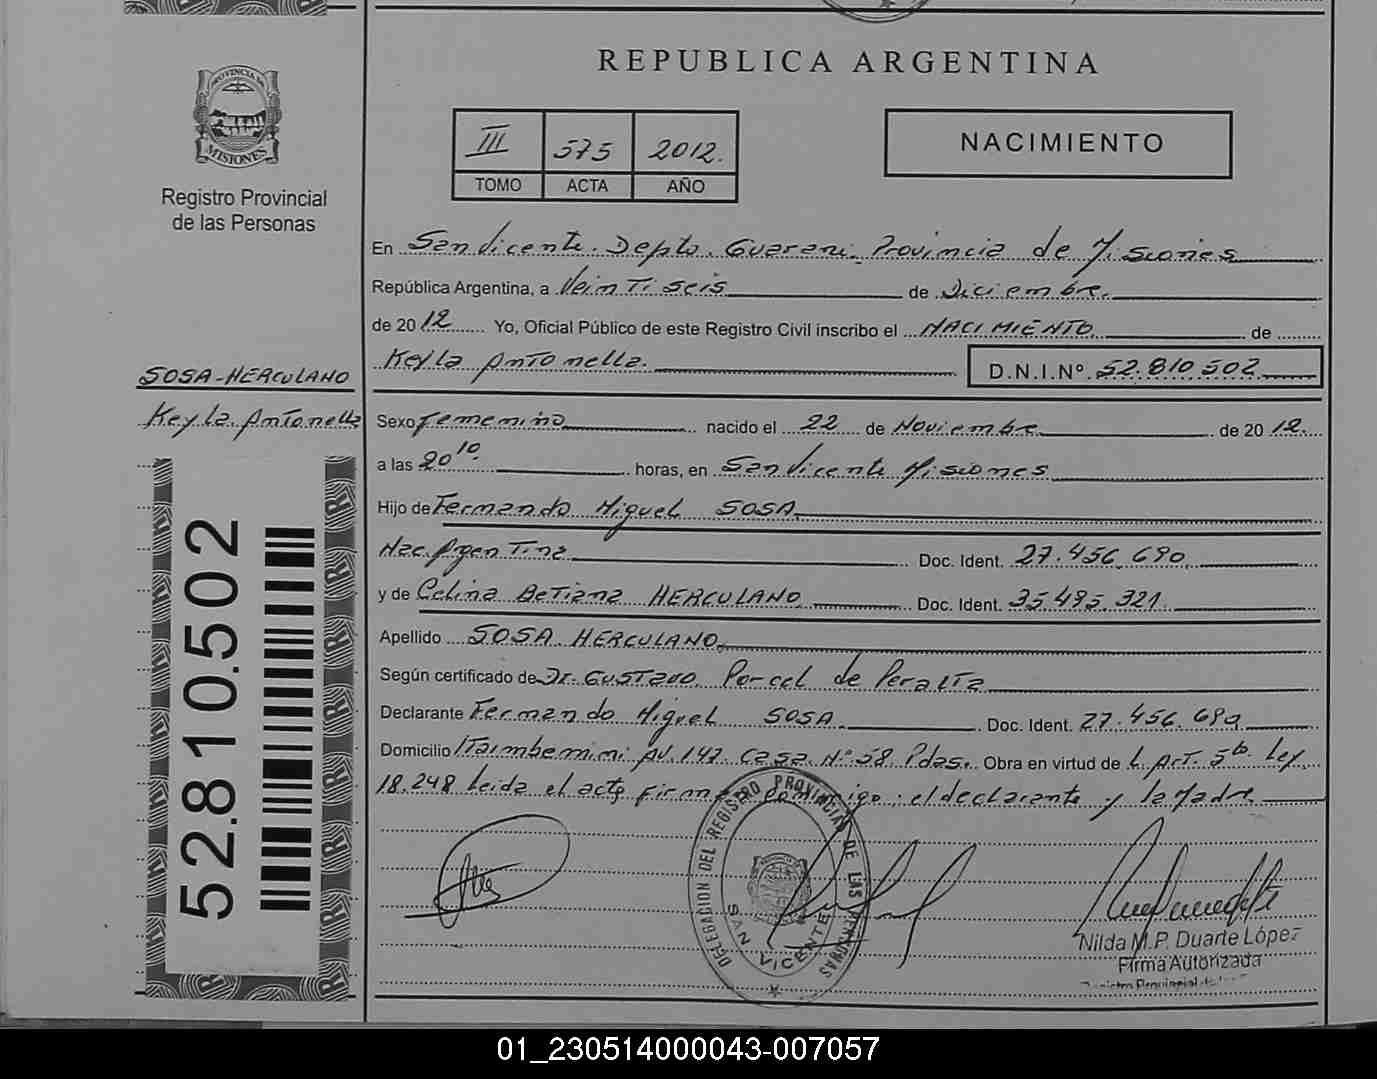 REPUBLICA ARGENTINA
PROVINCIA DE
MISIONES
Registro Provincial
de las Personas
III 575 2012.
TOMO ACTA AÑO
NACIMIENTO
En San Vicente. Depto. Guarani. Provincia de Misiones
República Argentina, a Veintiseis de Diciembre.
de 2012 Yo, Oficial Público de este Registro Civil inscribo el NACIMIENTO de
Keyla Antonella. D.N.I.Nº. 52.810.502
SOSA-HERCULANO
Keyla Antonella
Sexo Femenino nacido el 22 de Noviembre de 2012.
a las 20 10. horas, en San Vicente Misiones
Hijo de Fernando Miguel SOSA
Nac. Argentina Doc. Ident. 27.456.690
y de Celina Betiana HERCULANO Doc. Ident. 35.495.321
Apellido SOSA HERCULANO
Según certificado de Dr. Gustavo Porcel de Peralta
Declarante Fernando Miguel SOSA Doc. Ident. 27.456.690
Domicilio Itaimbemini AV. 147. Casa Nº 58 Pdas. Obra en virtud de L. Art. 5b. Ley
18.248 Leida el acta firma conmigo; el declarante y la Madre
52.810.502
DELEGACION DEL REGISTRO PROVINCIAL DE LAS PERSONAS
SAN VICENTE
Nilda M.P. Duarte López
Firma Autorizada
01_230514000043-007057